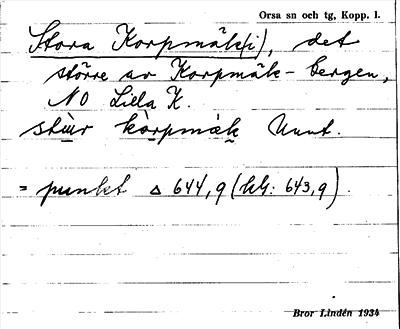 Orsa sn och tg, Kopp. l.
Stora Korpmäk(i), det
större av Korpmäk-bergen,
NO Lilla K.
stùr kòrpmäk Uunt.
= punkt △ 644,9 (hG: 643,9).
Bror Lindén 1934